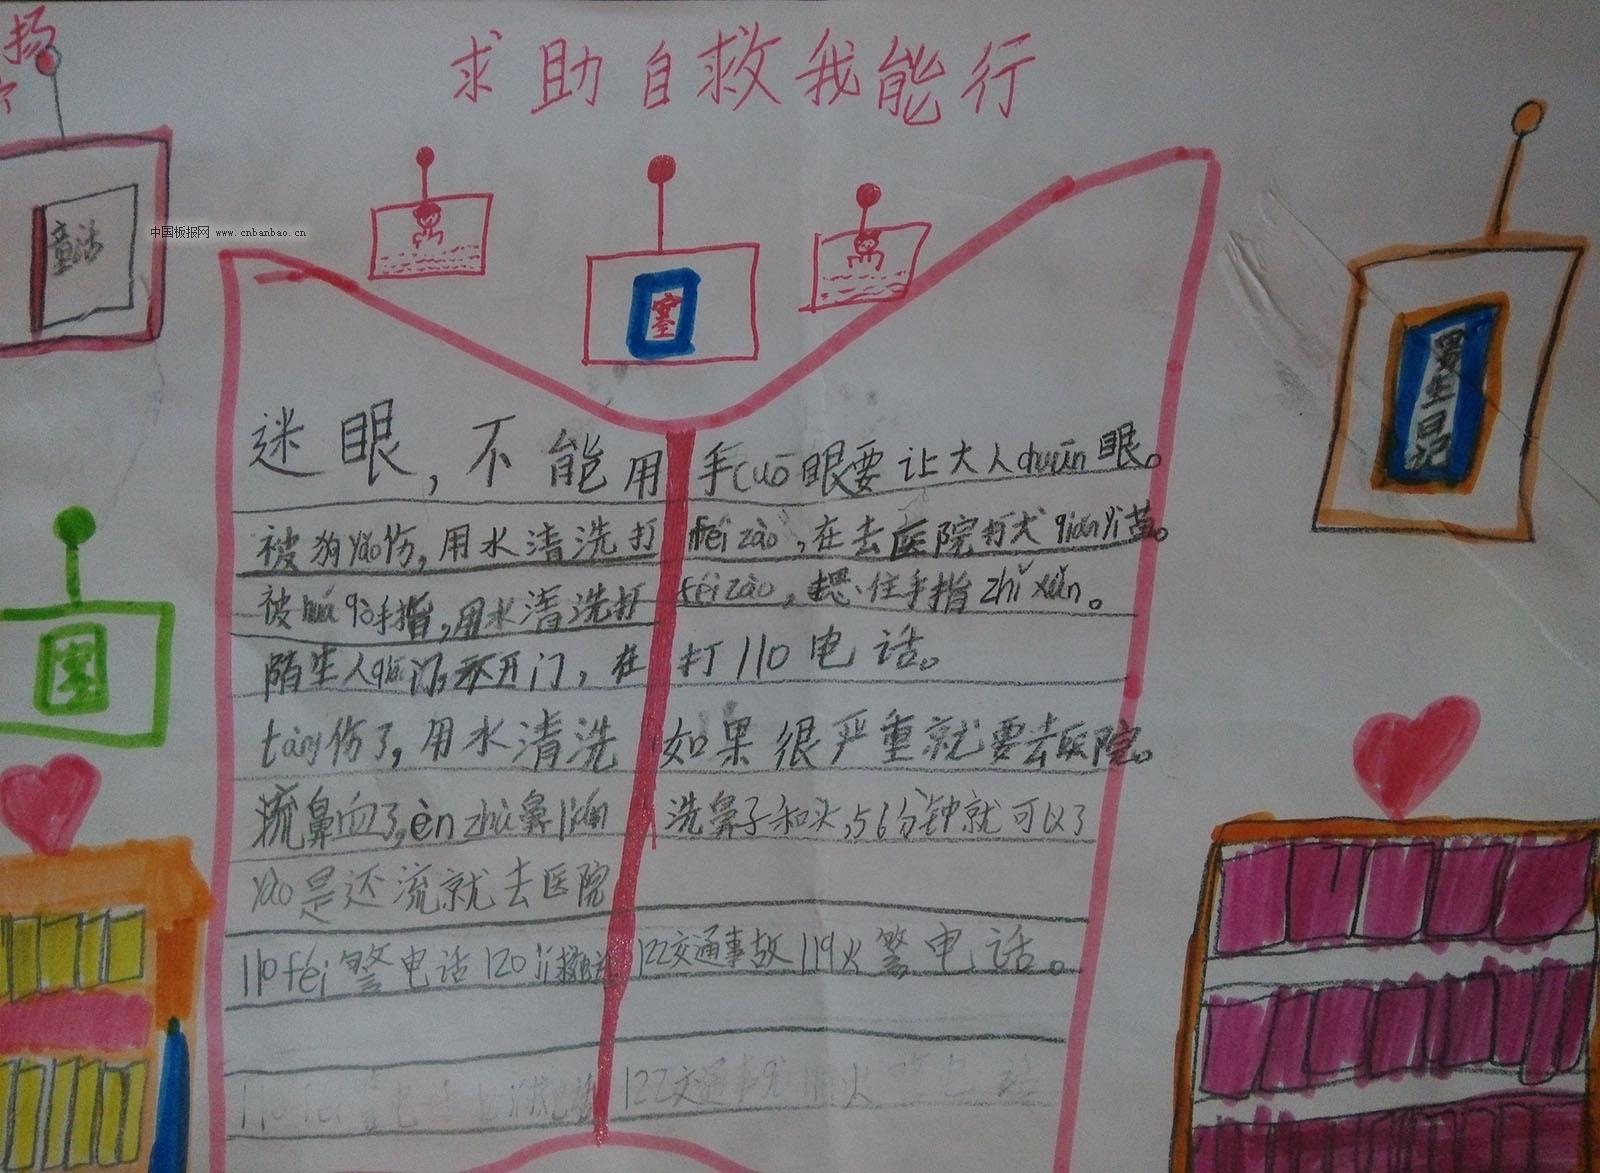 扬
求助自救我能行
童话
中国板报网 www.cnbanbao.cn
男生日记
迷眼,不能用手cuō眼要让大人chuūn眼。
被狗yǎo伤,用水清洗打féi zào,在去医院打犬qiānyì苗。
被 手指,用水清洗打féi zào, 住手指zhǐ xuǔn。
陌生人qiāo门,不开门,在打110电话。
tàng伤了,用水清洗 如果很严重就要去医院。
流鼻血了,èn zhù鼻 liǎn 洗鼻子和头,56分钟就可以了
yào是还流就去医院
110féi警电话120jí救电话122交通事故119火警电话。
122交通事 火